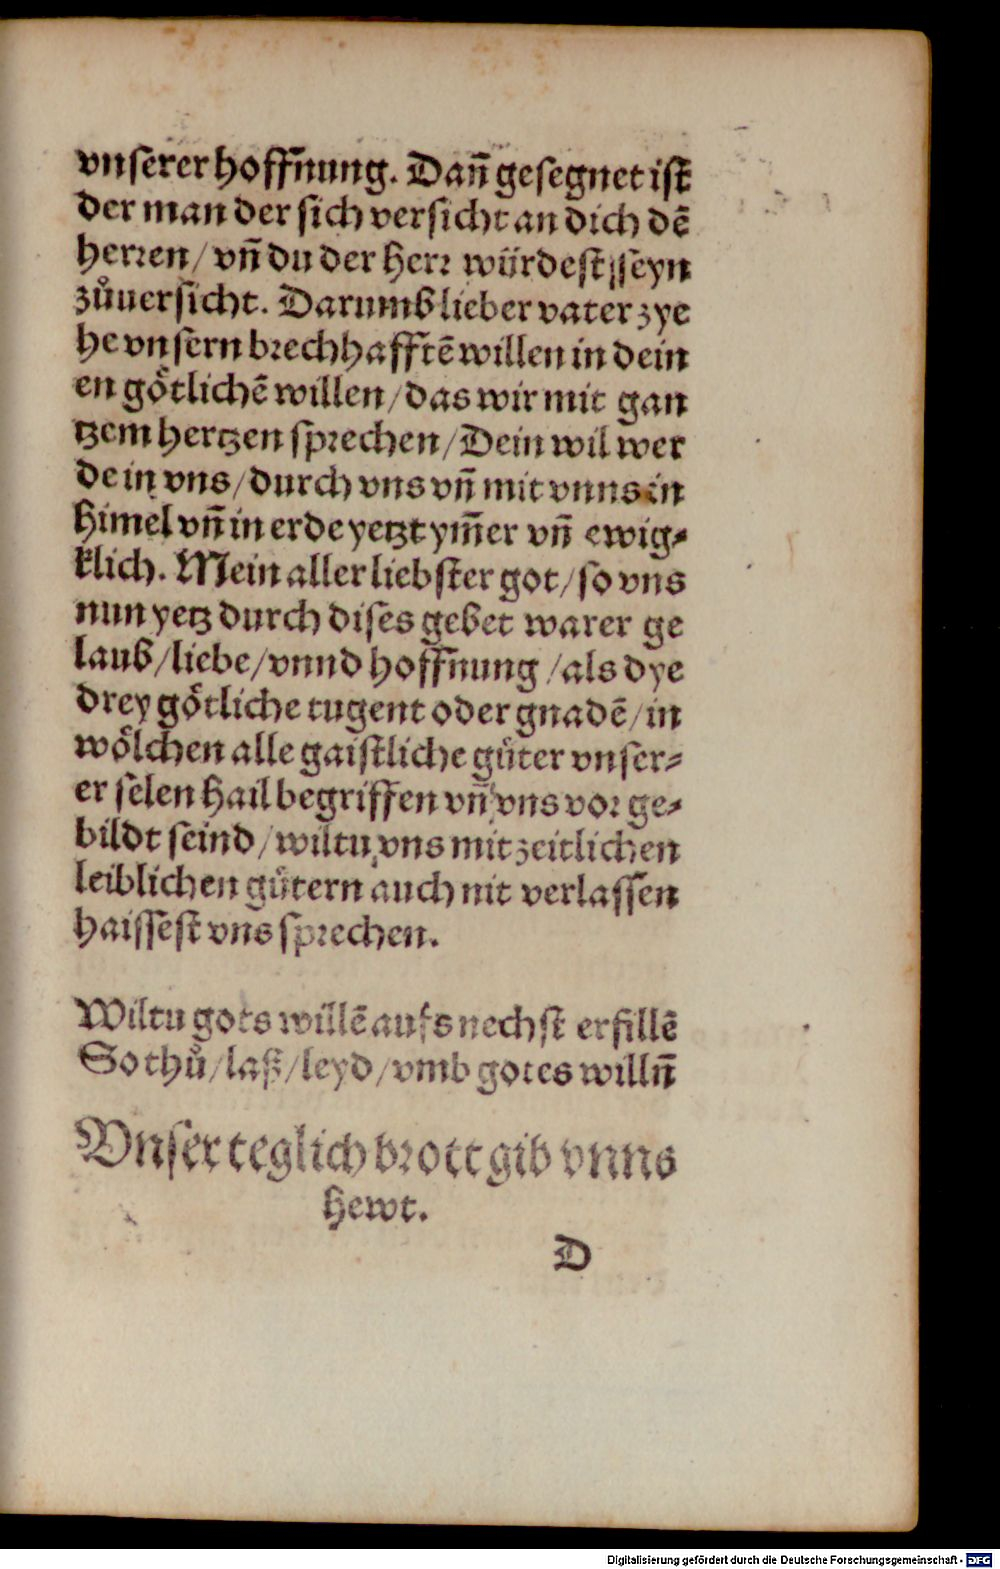 vnserer hoffñung. Dañ gesegnet ist
der man der sich versicht an dich dē
herren/ vñ du der herr würdest seyn
zůuersicht. Darumb lieber vater zye
he vnsern brechhafftē willen in dein
en götlichē willen/das wir mit gan
tzem hertzen sprechen/Dein wil wer
de in vns/durch vns vñ mit vnns in
himel vñ in erde yetzt ym̄er vñ ewig⸗
klich. Mein aller liebster got/so vns
nun yetz durch dises gebet warer ge
laub/liebe/vnnd hoffñung /als dye
drey götliche tugent oder gnadē/in
wölchen alle gaistliche güter vnser⸗
er selen hail begriffen vñ vns vor ge⸗
bildt seind/wiltu vns mit zeitlichen
leiblichen gütern auch nit verlassen
haissest vns sprechen.
Wiltu gots willē aufs nechst erfillē
So thů/laß/leyd/vmb gotes willñ
Vnser teglich brott gib vnns
hewt.
D
Digitalisierung gefördert durch die Deutsche Forschungsgemeinschaft - DFG